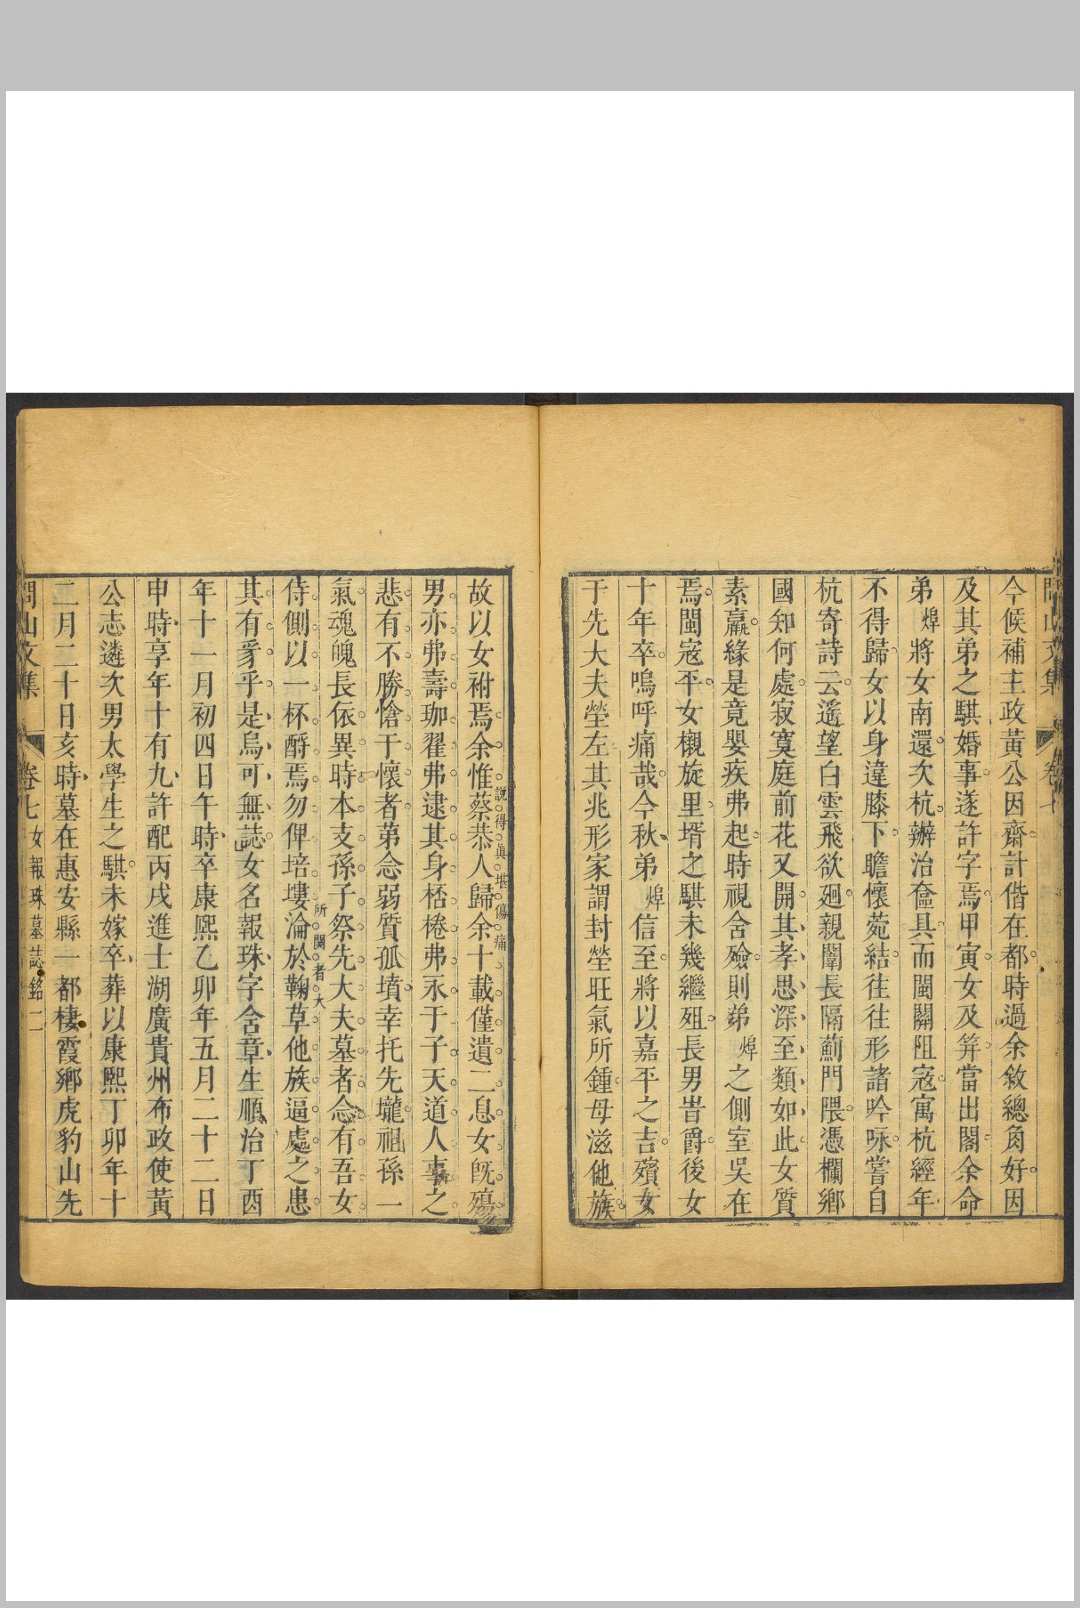 今候補主政黃公因齋計偕在都時過余敘總角好因
及其弟之騏婚事遂許字焉甲寅女及笄當出閣余命
弟焊將女南還次杭辦治奩具而閩關阻寇寓杭經年
不得歸女以身違膝下瞻懷菀結往往形諸吟咏嘗自
杭寄詩云遙望白雲飛欲廻親闈長隔薊門隈憑欄鄉
國知何處寂寞庭前花又開其孝思深至類如此女質
素羸緣是竟嬰疾弗起時視含殮則弟焊之側室吳在
焉閩寇平女櫬旋里壻之騏未幾繼殂長男旹爵後女
十年卒嗚呼痛哉今秋弟焊信至將以嘉平之吉殯女
于先大夫塋左其兆形家謂封塋旺氣所鍾毋滋他族
故以女祔焉余惟蔡恭人歸余十載僅遺二息女旣殤
說得眞堪傷痛
男亦弗壽珈翟弗逮其身桮棬弗永于子天道人事之
悲有不勝愴于懷者第念弱質孤墳幸托先壠祖孫一
氣魂魄長依異時本支孫子祭先大夫墓者念有吾女
所關者大
侍側以一杯酹焉勿俾培塿淪於鞠草他族逼處之患
其有豸乎是烏可無誌女名報珠字含章生順治丁酉
年十一月初四日午時卒康熙乙卯年五月二十二日
申時享年十有九許配丙戌進士湖廣貴州布政使黃
公志遴次男太學生之騏未嫁卒葬以康熙丁卯年十
二月二十日亥時墓在惠安縣一都棲霞鄉虎豹山先
問山文集 卷七 女報珠墓誌銘 二